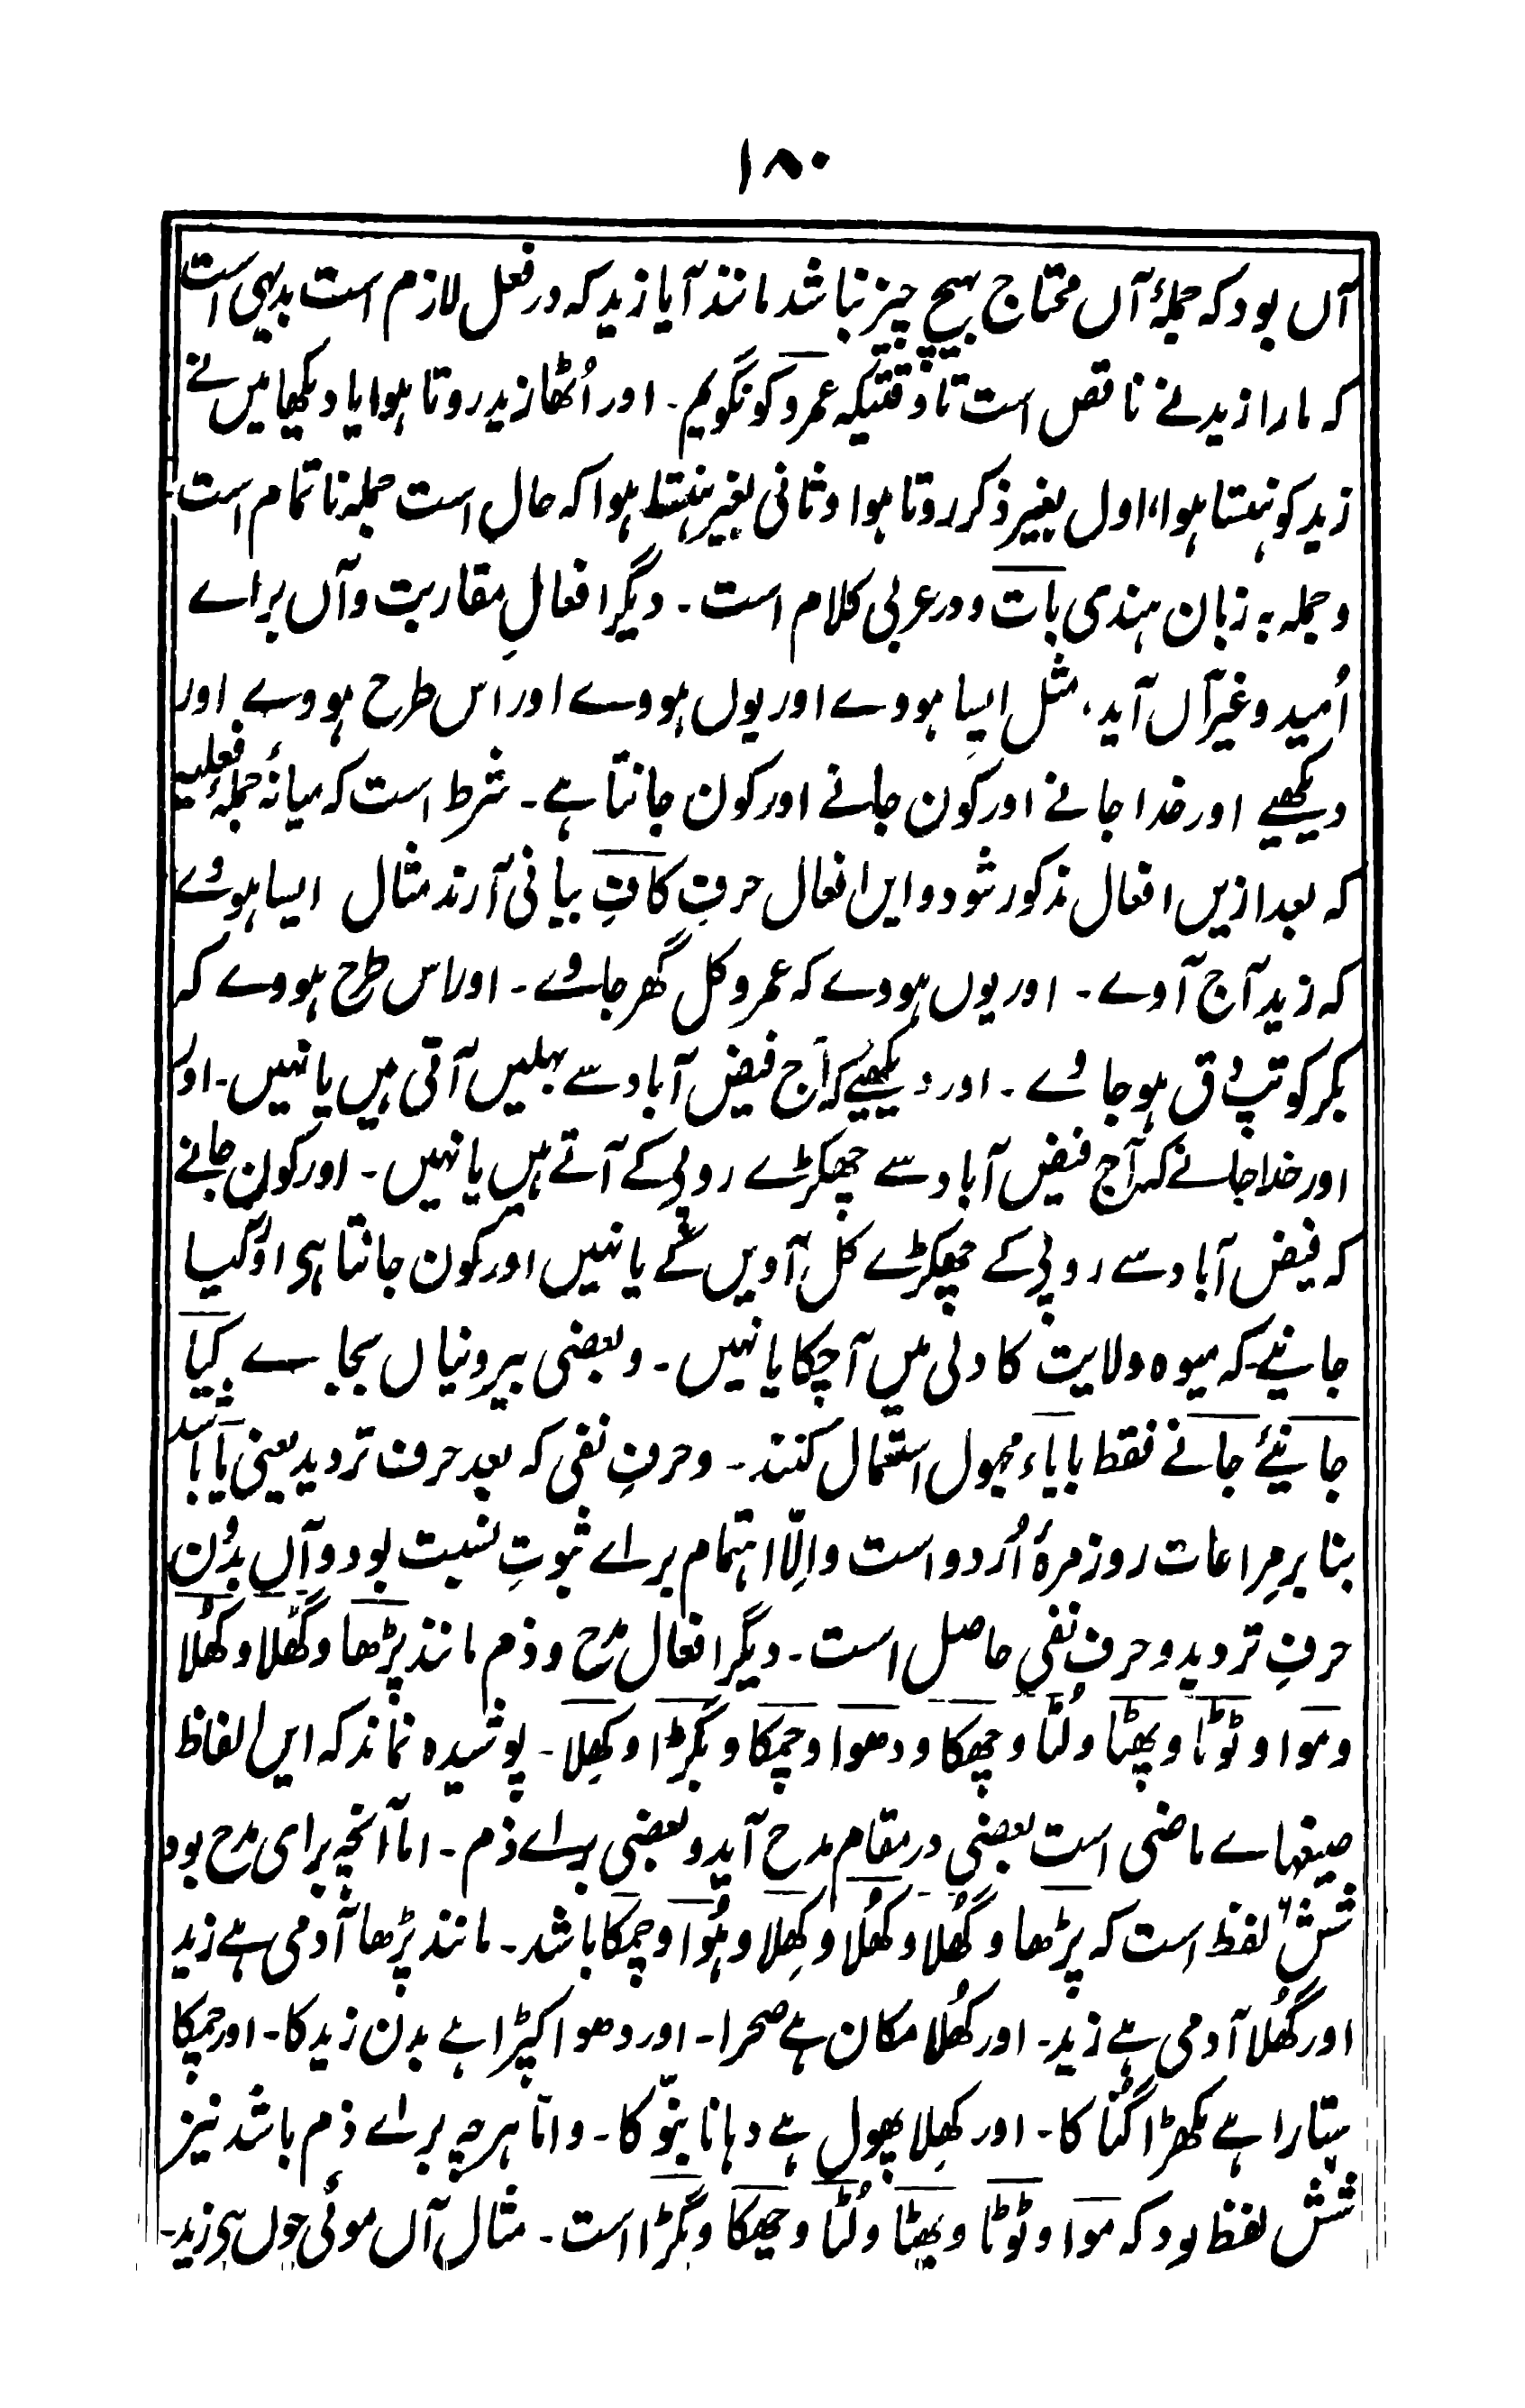 ۱۸۰
آں بود کہ جملۂ آں محتاج بہیچ چیز نباشد مانند آیا زید کہ در فعل لازم است بدیہی است
کہ مارا زید نے ناقص است تا وقتیکہ عمرو کو نگویم۔ اور اُٹھا زید روتا ہوا یا دیکھا میں نے
زید کو ہنستا ہوا، اول بغیر ذکر روتا ہوا و ثانی بغیر ہنستا ہوا کہ حال است جملہ ناتمام است
و جملہ بہ زبان ہندی بات و در عربی کلام است۔ دیگر افعالِ مقاربت و آں براے
اُمید و غیر آں آید، مثل ایسا ہووے اور یوں ہووے اور اس طرح ہووے اور
دیکھیے اور خدا جانے اور کون جانے اور کون جانتا ہے۔ شرط است کہ میانۂ جملۂ فعلیہ
کہ بعد ازیں افعال مذکور شود و ایں افعال حرفِ کافِ بیانی آرند مثال ایسا ہوئے
کہ زید آج آوے۔ اور یوں ہووے کہ عمرو کل گھر جائے۔ اور اس طرح ہووے کہ
بکر کو تپ دق ہو جائے۔ اور دیکھیے کہ آج فیض آباد سے بہلیں آتی ہیں یا نہیں۔ اور
اور خدا جانے کہ آج فیض آباد سے چھکڑے روپی کے آتے ہیں یا نہیں۔ اور کون جانے
کہ فیض آباد سے روپی کے چھکڑے کل آویں گے یا نہیں اور کون جانتا ہی اور کیا
جانیے کہ میوہ ولایت کا دلی میں آچکا یا نہیں۔ و بعضی بیرونیاں بجاے کیا
جانیئے جانے فقط با یاء مجہول استعمال کنند۔ و حرفِ نفی کہ بعد حرف تردید یعنی یا باشد
بنا بر مراعات روزمرۂ اُردو است و اِلّا اہتمام براے ثبوتِ نسبت بود و آں بدُن
حرفِ تردید و حرفِ نفی حاصل است۔ دیگر افعال مدح و ذم مانند پڑھا و گھُلا و کھُلا
و موا و ٹوٹا و پھٹا و لُٹا و چھکا و دھوا و چمکا و بگڑا و کھِلا۔ پوشیدہ نماند کہ ایں الفاظ
صیغہاے ماضی است بعضی در مقام مدح آید و بعضی براے ذم۔ اما آنچہ برای مدح بود
شش ۶ لفظ است کہ پڑھا و گھُلا و کھُلا و کھِلا و ہُوا و چمکا باشد۔ مانند پڑھا آدمی ہے زید
اور گھُلا آدمی ہے زید۔ اور کھُلا مکان ہے صحرا۔ اور دھوا کپڑا ہے بدن زید کا۔ اور چمکا
ستارا ہے مکھڑا گنا کا۔ اور کھِلا پھول ہے دہانا بنّو کا۔ و اما ہرچہ براے ذم باشد نیز
شش لفظ بود کہ موا و ٹوٹا و پھٹا و لُٹا و چھکا و بگڑا است۔ مثال آں موئی جوں ہی زید۔